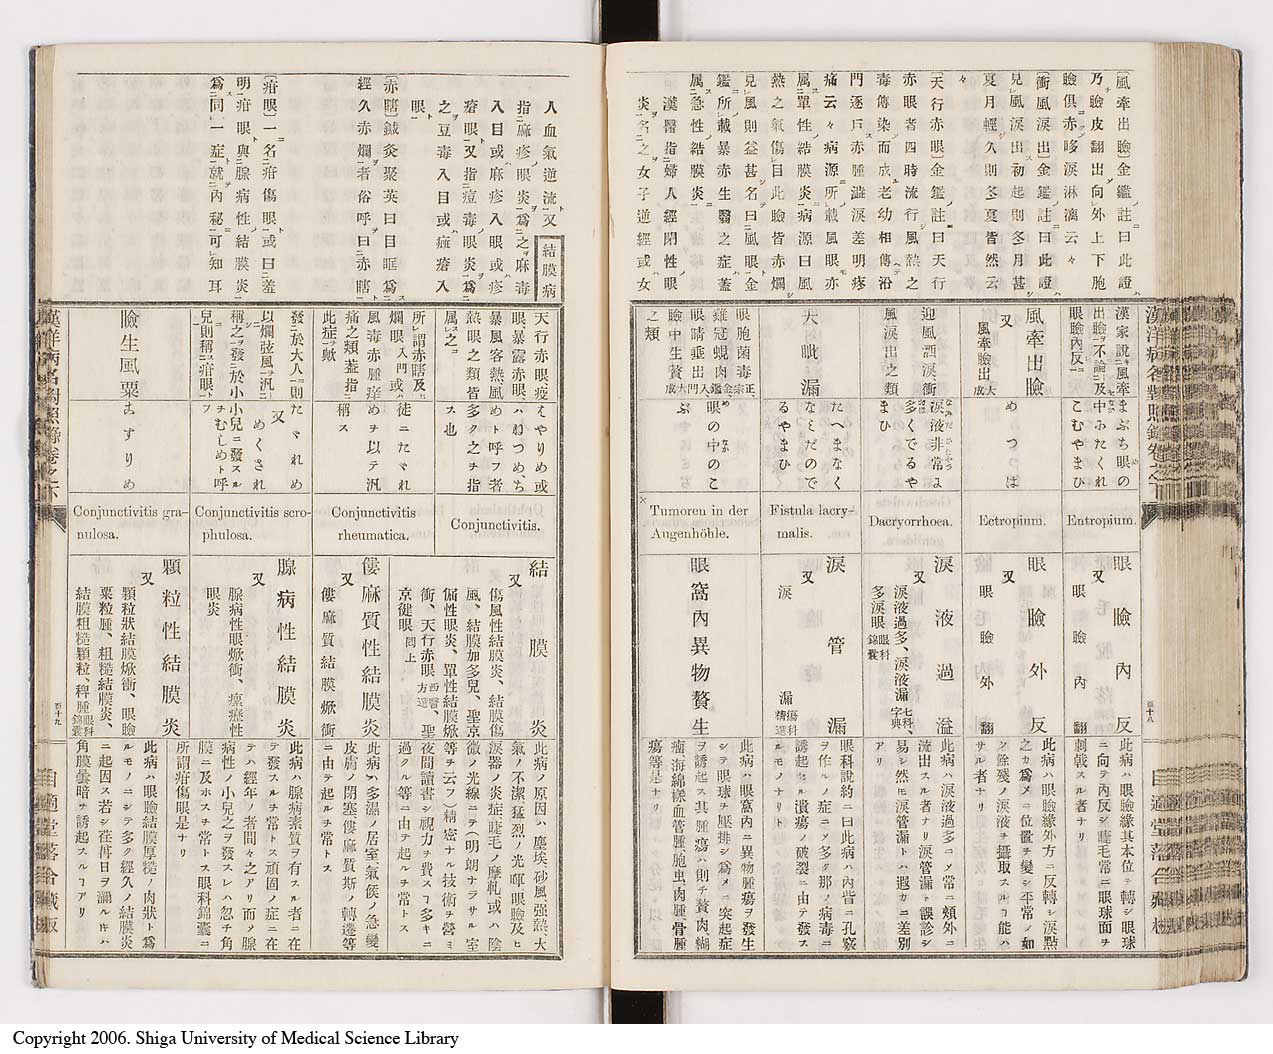 〔風牽出瞼〕金鑑註ニ曰此證
乃瞼皮翻出向外上下胞
瞼俱赤𥈢淚淋漓云々
〔衝風淚出〕金鑑註曰此證
見風淚出初起則冬月甚
夏月輕久則冬夏皆然云
々
〔天行赤眼〕金鑑註曰天行
赤眼者四時流行風熱之
毒傳染而成老幼相傳沿
門逐戶赤腫澁淚羞明疼
痛云々病源所載風眼亦
屬單性結膜炎病源曰風
熱之氣傷目此瞼皆赤爛
見風則益甚名曰風眼金
鑑所載暴赤生翳之症蓋
屬急性結膜炎
漢醫指婦人經閉性ノ眼
炎名之女子逆經或ハ女
漢洋病名對照錄卷之下
漢家說キ風牽
出瞼不論及
眼瞼內反
まぶち眼の
中ふたくれ
こむやまひ
Entropium.
眼瞼內反
又
眼瞼內翻
此病ハ眼瞼緣其本位ヲ轉シ眼球
ニ向テ內反シ睫毛常ニ眼球面ヲ
刺戟スル者ナリ
風牽出瞼
又
風牽瞼出 大成
めつつぱ
Ectropium.
眼瞼外反
又
眼瞼外翻
此病ハ眼瞼緣外方ニ反轉シ淚點
之カ爲メニ位置ヲ變シ平常ノ如
ク餘殘ノ淚液ヲ攝取スルコ能ハ
サル者ナリ
迎風洒淚衝
風淚出之類
淚液非常よ
多くでるや
まひ
Dacryorrhoea.
淚液過溢
又
淚液過多、淚液漏 七科字典、
多淚眼 眼科錦囊
此病ハ淚液過多ニメ常ニ頰外ニ
流出スル者ナリ淚管漏ト誤診シ
易シ然モ淚管漏トハ遐カニ差別
アリ
大眥漏
たへまなく
なミだので
るやまひ
Fistula lacry-
malis.
淚管漏
又
淚漏 瘍科精選
眼科說約ニ曰此病ハ內眥ニ孔竅
ヲ作ルノ症ニメ多ク那ノ病毒ニ
誘起セル潰瘍ノ破裂ニ由テ發ス
ルモノナリ
眼胞菌毒 正宗、
雞冠蜆肉 金鑑
眼睛垂出 入門
瞼中生贅 大成
之類
眼の中のこ
ぶ
Tumoren in der
Augenhöhle.
眼窩內異物贅生
此病ハ眼窩內ニ異物腫瘍ヲ發生
シテ眼球ヲ壓排シ爲メニ突起症
ヲ誘起ス其腫瘍ハ則チ贅肉、糊
瘤、海綿樣血管腫、胞虫、肉腫、骨腫
瘍等是ナリ
百十八
自適堂落合藏板
人血氣逆流ト又
指麻疹眼炎爲之麻毒
入目或麻疹入眼或疹
瘡眼ト又指痘毒眼炎爲
之豆毒入目或ハ痲瘡入
眼ト
〔赤瞎〕鍼灸聚英曰目眶爲
經久赤爛者俗呼曰赤瞎
〔疳眼〕一名疳傷眼或曰羞
明疳眼與腺病性結膜炎
爲同一症就內秘可知耳
結膜病
天行赤眼疫
眼暴露赤眼
暴風客熱風
熱眼之類皆
屬之
はやりめ或
ハねつめち
めト呼フ者
多ク之チ指
ス也
Conjunctivitis.
結膜炎
又
傷風性結膜炎、結膜傷
風、結膜加多兒、聖京
傷性眼炎、單性結膜焮
衝、天行赤眼 西醫方選 聖
京健眼 同上
此病ノ原因ハ塵埃、砂風、强熱、大
氣ノ不潔、猛烈ノ光暉、眼瞼及ヒ
淚器ノ炎症、睫毛ノ摩軋或ハ陰
微ノ光線ニテ(明朗ナラサル室
等ヲ云フ)精密ナル技術ヲ營ミ
夜間讀書シ視力ヲ費スコ多キニ
過クル等ニ由テ起ルヲ常トス
所謂赤瞎及ヒ
爛眼 入門 或ハ
風毒赤腫痒
痛之類蓋指
此症ヲ歟
徒ニたヾれ
めヲ以テ汎
稱ス
Conjunctivitis
rheumatica.
僂麻質性結膜炎
又
僂麻質結膜焮衝
此病ハ多濕ノ居室、氣候ノ急變
皮膚ノ閉塞、僂麻質斯ノ轉遷等
ニ由テ起ルヲ常トス
發ニ於大人則
以爛弦風ヲ汎ニ
稱之ヲ發ニ於小
兒則稱ニ疳眼ト
たヾれめ
又
めくされ
小兒ニ發スル
ヲむしめト呼
フ
Conjunctivitis scro-
phulosa.
腺病性結膜炎
又
腺病性眼焮衝、瘰癧性
眼炎
此病ハ腺病素質ヲ有スル者ニ在
テ發スルヲ常トス頑固ノ症ニ在
テハ經年ノ者間々之アリ而メ腺
病性ノ小兒之ヲ發スレハ忽チ角
膜ニ及ホスヲ常トス眼科錦囊ニ
所謂疳傷眼是ナリ
瞼生風粟
ますりめ
Conjunctivitis gra-
nulosa.
顆粒性結膜炎
又
顆粒狀結膜焮衝、眼瞼
粟粒腫、粗糙結膜炎、
結膜粗糙顆粒、稗腫 眼科錦囊
此病ハ眼瞼結膜厚糙ノ肉狀ト爲
ルモノニシテ多ク經久ノ結膜炎
ニ起因ス若シ荏苒日ヲ瀰ルキハ
角膜曇暗ヲ誘起スルコアリ
漢洋病名對照錄卷之下
百十九
自適堂落合藏板
Copyright 2006. Shiga University of Medical Science Library